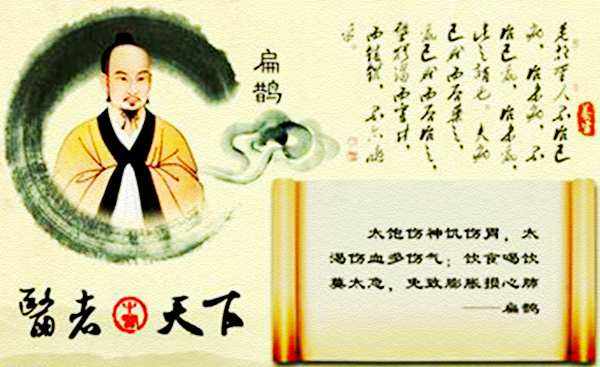 扁鹊
是故圣人不治已
病，治未病，不
治已乱，治未乱，
此之谓也。夫病
已成而后药之，
乱已成而后治之，
譬犹渴而穿井，
不亦晚
乎
养生
醫者天下
太饱伤神饥伤胃，太
渴伤血多伤气；饮食喝饮
莫太急，免致膨胀损心肺
——扁鹊